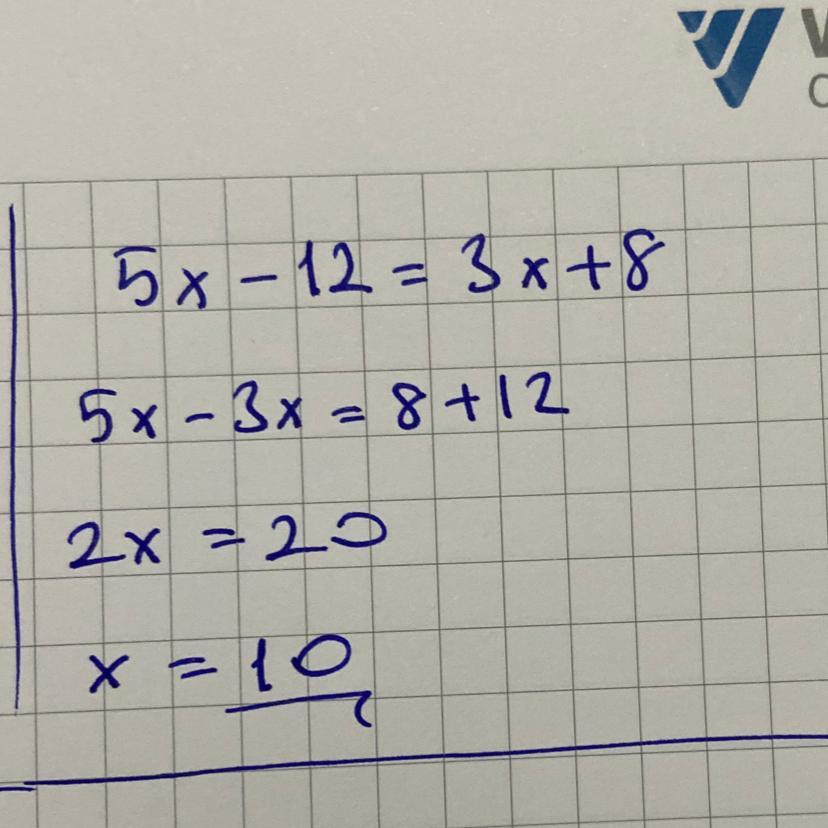 5x - 12 = 3x + 8
5x - 3x = 8 + 12
2x = 20
x = 10